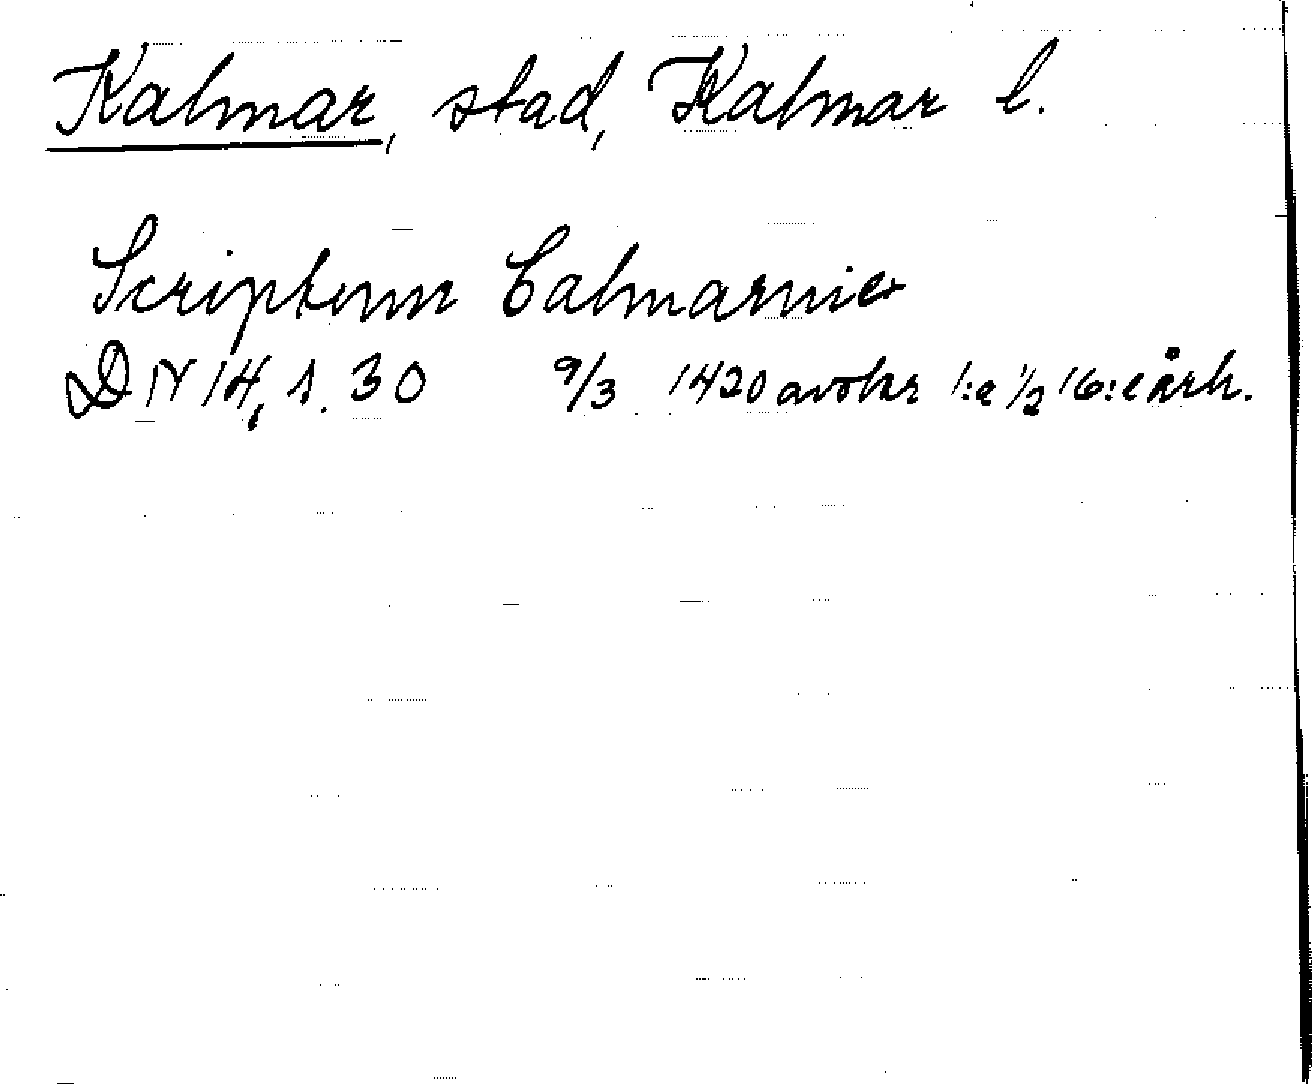 Kalmar, stad, Kalmar l.
Scriptum Calmarnie
DN 14, s. 30 9/3 1420 avskr 1:a 1/2 16:e årh.